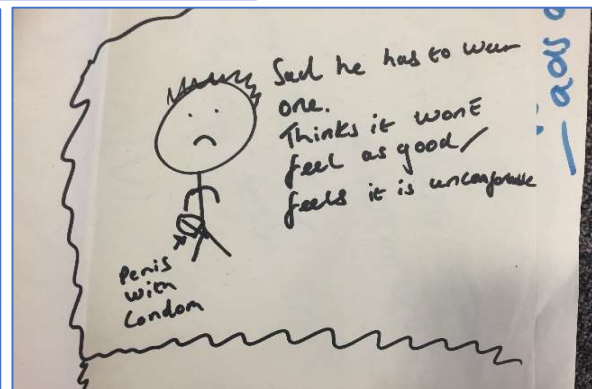 Sad he has to wear
one.
Thinks it wont
feel as good/
feels it is
Penis
with
Condom